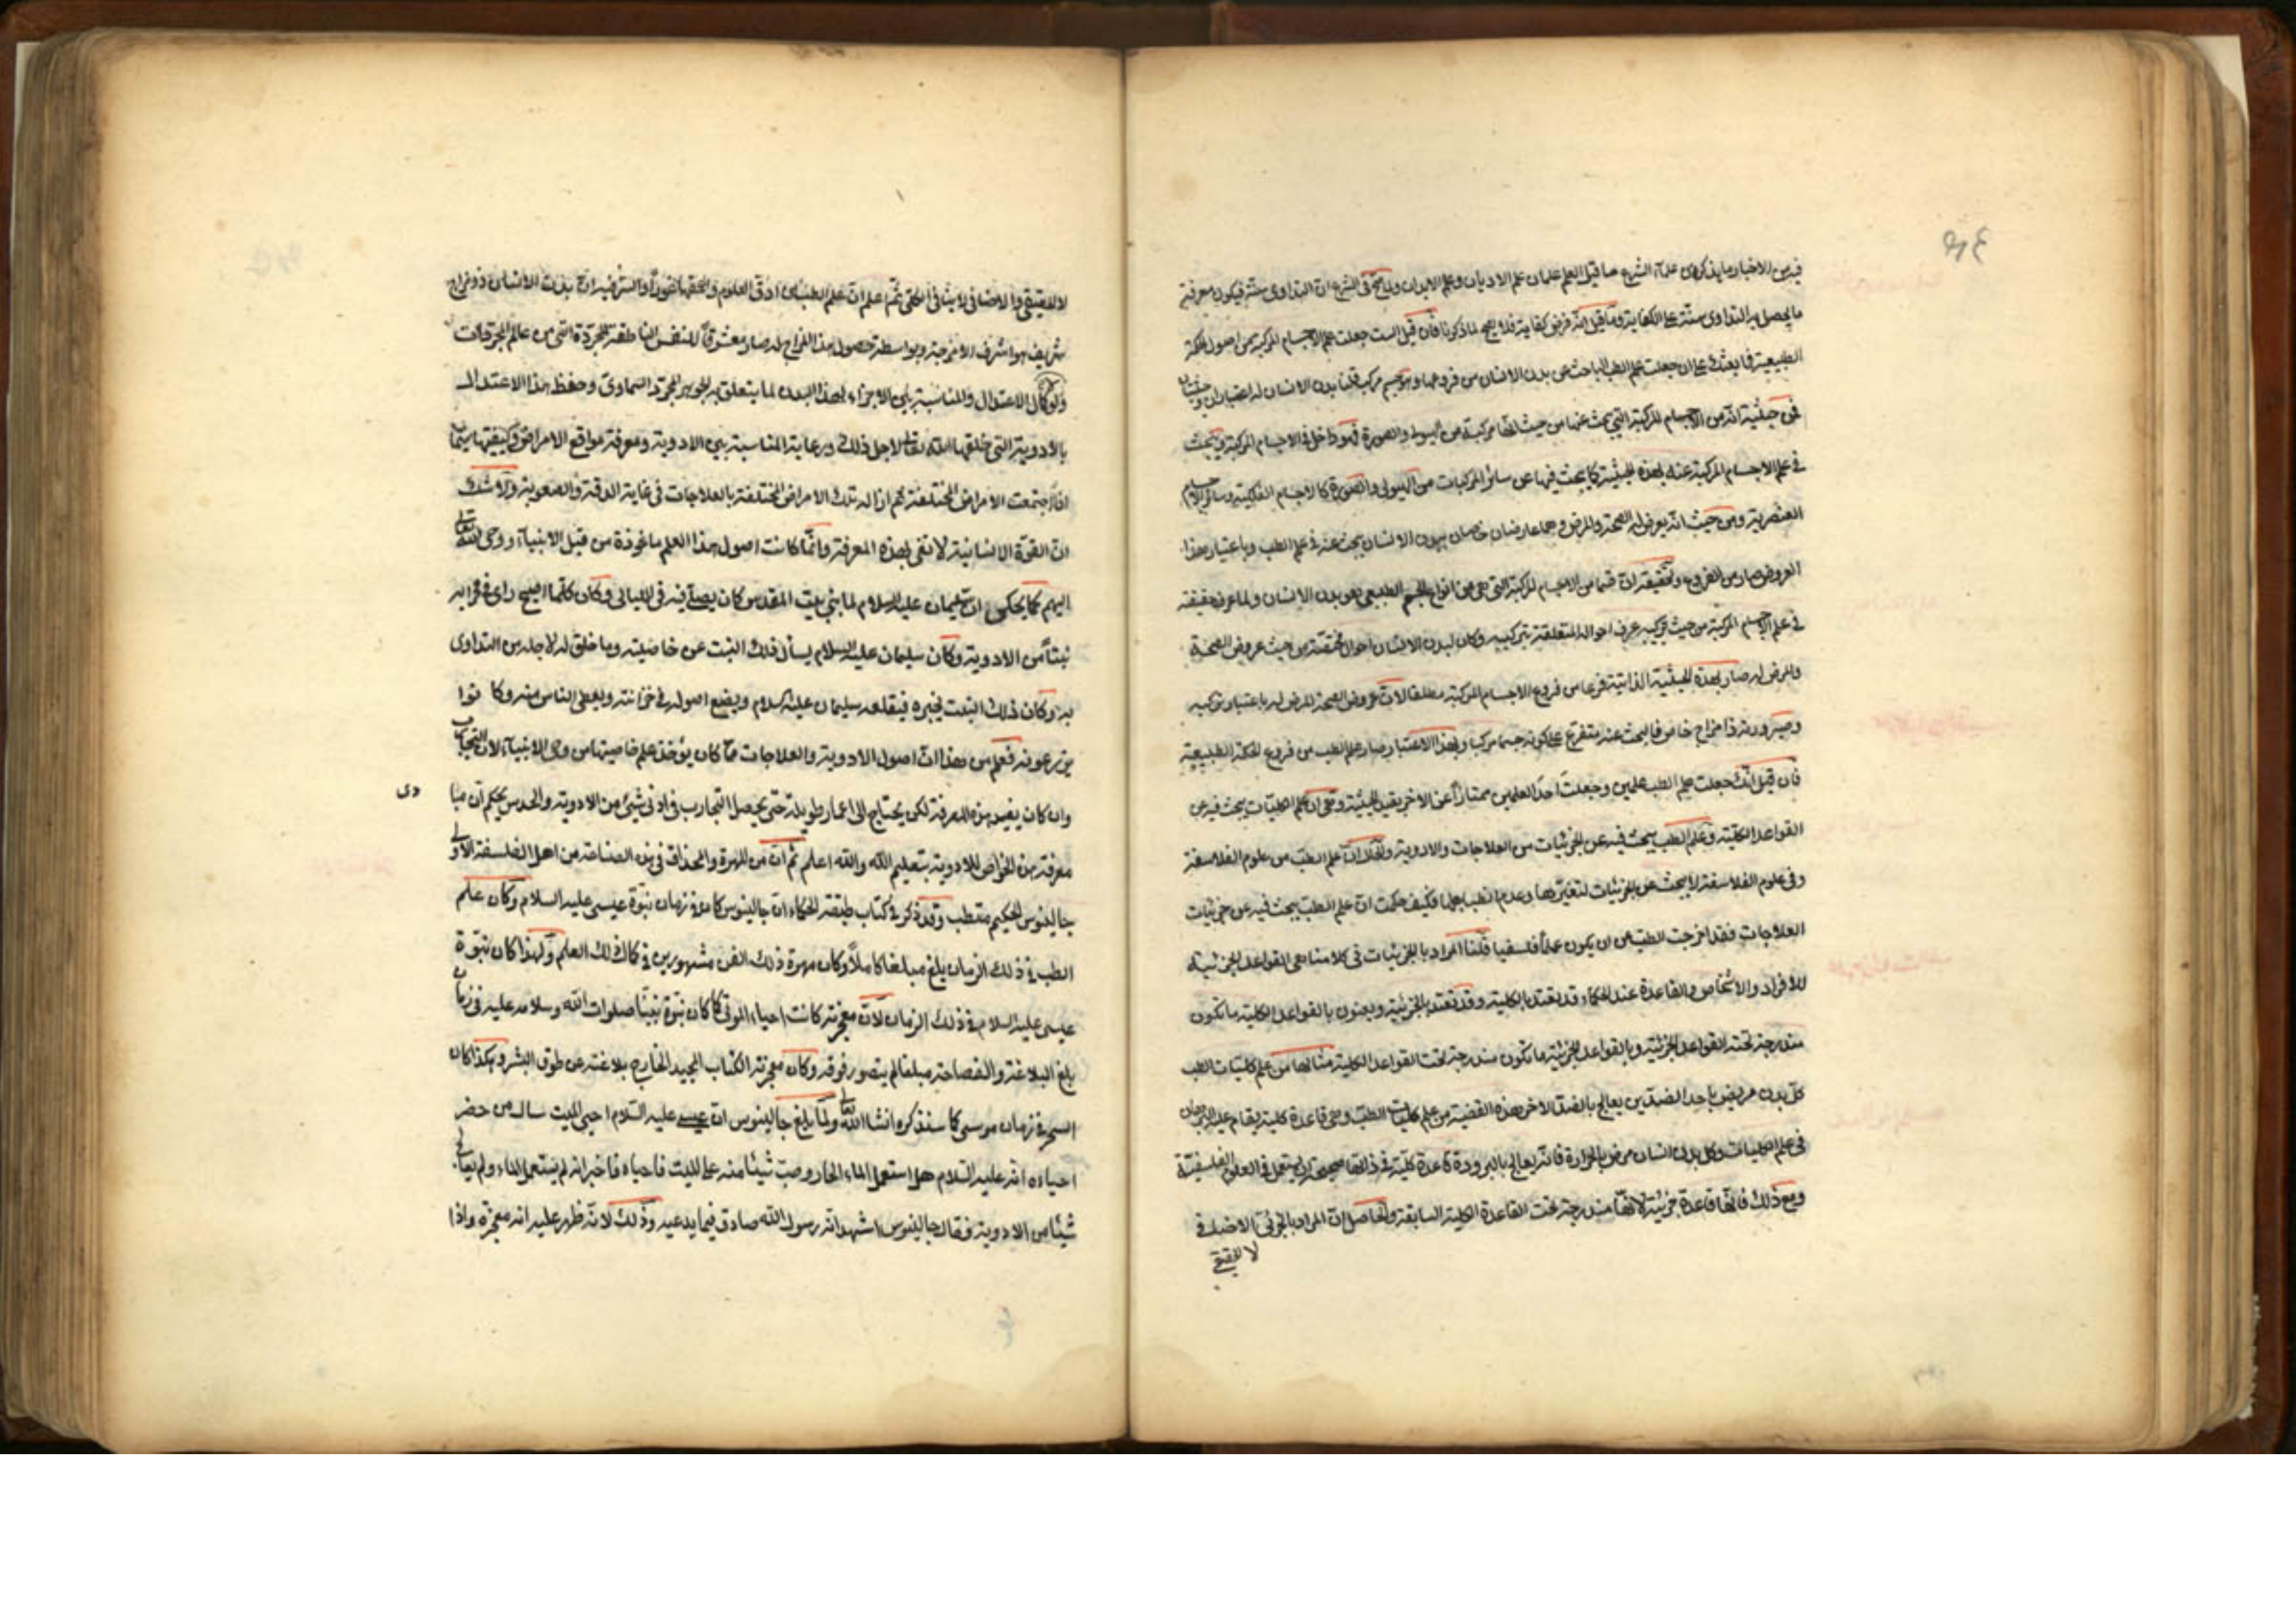 فيه من الاخبار ما يذكره علمآء الشرع ما قيل العلم علمان علم الاديان وعلم الابدان ولما صح فى الشرع ان التداوى سنة فيكون معرفة
ما يحصل به التداوى سنة على الكفاية وما قيل انه فرض كفاية فلا يصح لما ذكرنا فان قيل الست جعلت علم الاجسام المركبة من اصول الحكمة
الطبيعية فما بعثك على ان جعلت علم الطب الباحث عن بدن الانسان من فروعها وهو جسم مركب قلنا بدن الانسان له اعتباران وحيثيتان
فمن حيثية انه من الاجسام المركبة التى يبحث عنها من حيث انها مركبة من الهيولى والصورة فهو داخل فى الاجسام المركبة ويبحث
فى علم الاجسام المركبة عنه بهذه الحيثية كما يبحث فيها عن سائر المركبات من الهيولى والصورة كالاجسام الفلكية وسائر الاجسام
العنصرية ومن حيث انه يعرض له الصحة والمرض وهما عارضان خاصان ببدن الانسان يبحث عنه فى علم الطب وباعتبار هذا
العروض صار من الفروع وتحقيقه ان قسما من الاجسام المركبة التى هى من انواع الجسم الطبيعى هو بدن الانسان ولما عرف حقيقته
فى علم الاجسام المركبة من حيث تركيبه عرف احواله المتعلقة بتركيبه وكان لبدن الانسان احوال مختصة من حيث عروض الصحة
والمرض له صار بهذه الحيثية الذاتية فرعا من فروع الاجسام المركبة مطلقا لان عروض الصحة والمرض له باعتبار تركيبه
وصيرورته ذا مزاج خاص فالبحث عنه متفرع على كونه جسما مركبا وبهذا الاعتبار صار علم الطب من فروع الحكمة الطبيعية
فان قيل انك جعلت علم الطب علمين وجعلت احد العلمين ممتازاً عن الاخر بقيد الحيثية وهى ان علم الكليات يبحث فيه عن
القواعد الكلية وعلم الطب يبحث فيه عن الجزئيات من العلاجات والادوية ولا شك ان علم الطب من علوم الفلاسفة
وفى علوم الفلاسفة لا يبحث عن الجزئيات لتغيرها وعدم انضباطها فكيف حكمت ان علم الطب يبحث فيه عن جزئيات
العلاجات فقد اخرجت الطب من ان يكون علماً فلسفيا قلنا المراد بالجزئيات فى كلامنا هى القواعد الجزئية
للافراد والاشخاص والقاعدة عند الحكماء قد تقيد بالكلية وقد تقيد بالجزئية ويعنون بالقواعد الكلية ما تكون
مندرجة تحته القواعد الجزئية وبالقواعد الجزئية ما تكون مندرجة تحت القواعد الكلية مثالها من علم كليات الطب
كل بدن مريض باحد الضدين يعالج بالضد الاخر هذه القضية من علم كليات الطب وهى قاعدة كلية يقام عليه البرهان
فى علم الكليات وكل بدن انسان مرض بالحرارة فانه يعالج بالبرودة قاعدة كلية فى ذاتها صحيحة ان يستعمل فى العلوم الفلسفية
ومع ذلك فانها قاعدة جزئية لانها مندرجة تحت القاعدة الكلية السابقة والحاصل ان المراد بالجزئى الاضافى
لا الحقيقى
لا الحقيقى والاضافى لا ينافى الكلى ثم اعلم ان علم الطب من ادق العلوم والشرف فيه ان بدن الانسان ذو مزاج
شريف هو اشرف الامزجة وبواسطة حصول هذا المزاج له صار معشوقاً للنفس الناطقة المجردة التى من عالم المجردات
ولو كمال الاعتدال والمناسبة بين الاجزاء لهذا البدن لما يتعلق به الجوهر المجرد السماوى وحفظ هذا الاعتدال
بالادوية التى خلقها الله تعالى لاجل ذلك ورعاية المناسبة بين الادوية ومعرفة مواقع الامراض وكيفيتها سيما
اذا اجتمعت الامراض المختلفة ثم ازالة تلك الامراض المختلفة بالعلاجات فى غاية الدقة والصعوبة ولا شك
ان القوة الانسانية لا تفى بهذه المعرفة وانما كانت اصول هذا العلم ماخوذة من قبل الانبيآء ووحى الله تعالى
اليهم كما يحكى ان سليمان عليه السلام لما بنى بيت المقدس كان يصلى فيه فى الليالى وكان كلما اصبح راى فى محرابه
نبتاً من الادوية وكان سليمان عليه السلام يسأل ذلك النبت عن خاصيته وما خلق له لاجله من التداوى
به وكان ذلك النبت يخبره فيقلعه سليمان عليه السلام ويضع اصوله فى خزانته ويعطى الناس منه وكانوا
يزرعونه فعلم من هذا ان اصول الادوية والعلاجات مما كان يؤخذ علم خاصيتها من وحى الانبيآء لان التجارب
وان كان يفيد هذه المعرفة لكن يحتاج الى اعمار طويلة حتى يحصل التجارب فى ادنى شيئ من الادوية والحدس يحكم ان مبا
دى
معرفة هذه الخواص للادوية بتعليم الله والله اعلم ثم ان من المهرة والحذاق فى هذه الصناعة من اهل الفلسفة الاولى
جالينوس الحكيم متطبب وقد ذكر فى كتاب طبقة الحكماء ان جالينوس كان فى زمان نبوة عيسى عليه السلام وكان علم
الطب فى ذلك الزمان بلغ مبلغا كاملاً وكان مهرة ذلك الفن مشهورين فى كمال ذلك العلم ولهذا كان نبوة
عيسى عليه السلام فى ذلك الزمان لان معجزته كانت احياء الموتى كما كان نبوة نبينا صلوات الله وسلامه عليه فى زمان
بلغ البلاغة والفصاحة مبلغا لم يتصور فوقه وكان معجزته الكتاب المجيد الخارج بلاغته عن طوق البشر وهكذا كان
السحر فى زمان موسى كما سنذكره انشا الله تعالى ولما بلغ جالينوس ان عيسى عليه السلام احيى الميت سال من حضر
احياءه انه عليه السلام هل استعمل الماء الحار وصب شيئا منه على الميت فاحياه فاخبر انه لم يستعمل الماء ولم يعالج
شيئا من الادوية فقال جالينوس اشهد انه رسول الله صادق فيما يدعيه وذلك لانه ظهر عليه انه معجزة واذا